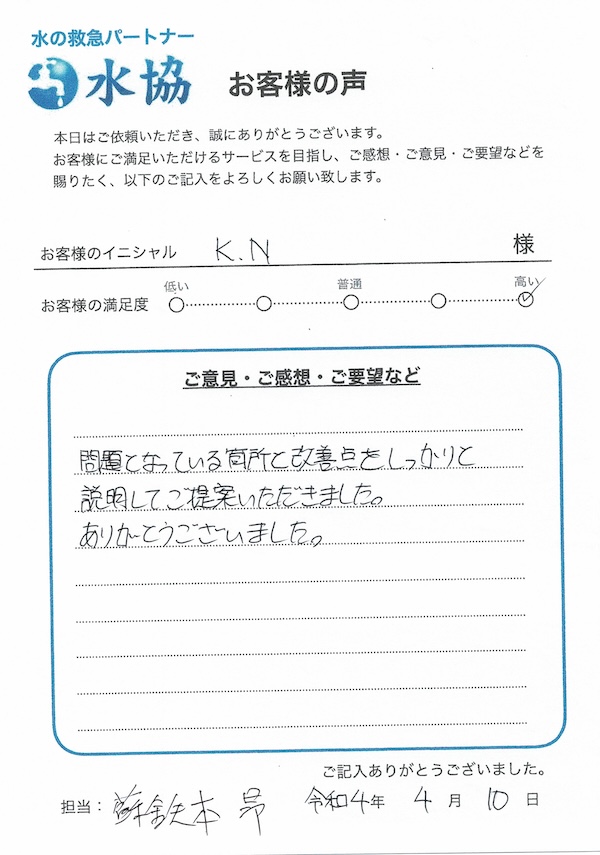 水の救急パートナー
水協 お客様の声
本日はご依頼いただき、誠にありがとうございます。
お客様にご満足いただけるサービスを目指し、ご感想・ご意見・ご要望などを
賜りたく、以下のご記入をよろしくお願い致します。
お客様のイニシャル K.N 様
低い 普通 高い
お客様の満足度
ご意見・ご感想・ご要望など
問題となっている箇所と改善点をしっかりと
説明してご提案いただきました。
ありがとうございました。
ご記入ありがとうございました。
担当: 蘇鉄本 昂 令和4年 4月 10日